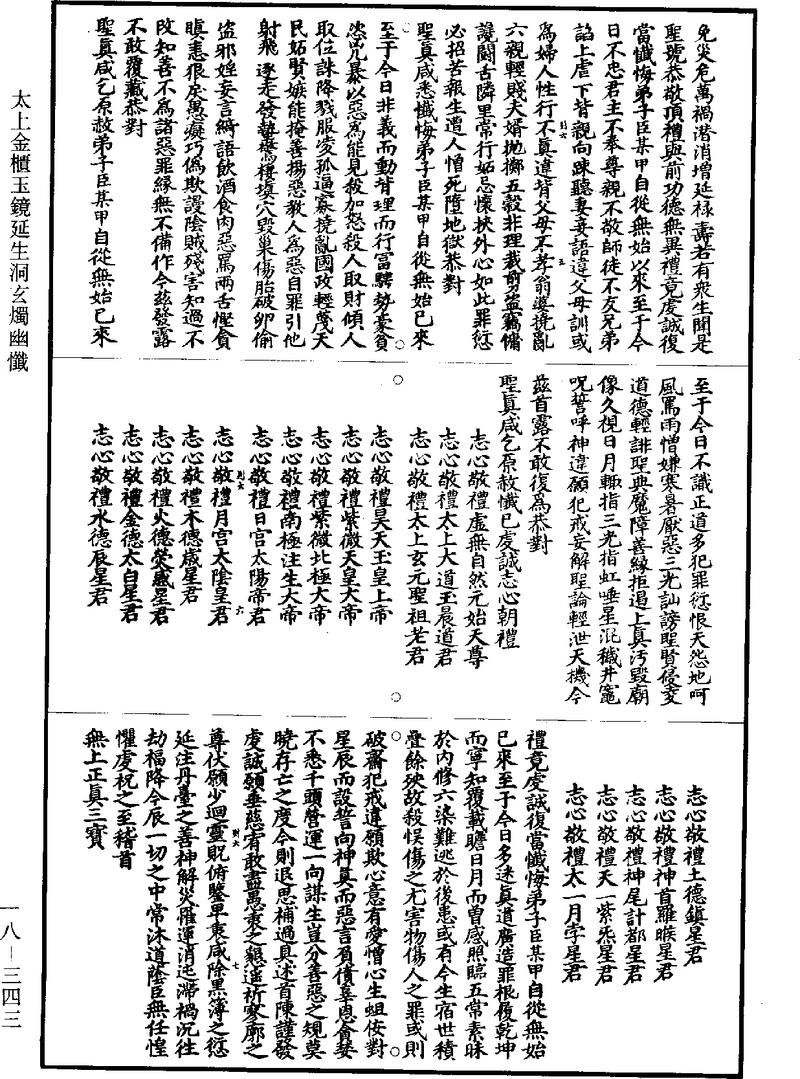 免災危萬禍潛消增延祿壽若有衆生聞是
聖號恭敬頂禮與前功德無異禮竟虔誠復
當懺悔弟子臣某甲自從無始以來至于今
日不忠君主不奉尊親不敬師徒不友兄弟
諂上虐下背親向踈聽妻妾語違父母訓或
爲婦人性行不眞違背父母不孝翁婆撓亂
六親輕賤夫婿拋擲五穀非理裁剪盜竊傭
讒鬬舌隣里常行妬忌懷挾外心如此罪愆
必招苦報生遭人憎死墮地獄恭對
聖眞咸悉懺悔弟子臣某甲自從無始已來
至于今日非義而動背理而行冨驕勢豪貧
恣兇暴以惡爲能見殺加怒殺人取財傾人
取位誅降戮服凌孤逼寡撓亂國政輕蔑天
民妬賢嫉能掩善揚惡教人爲惡自罪引他
射飛逐走發蟄驚棲填穴毀巢傷胎破卵偷
盜邪婬妄言綺語飲酒食肉惡罵兩舌慳貪
瞋恚狠戾愚癡巧僞欺謾陰賊殘害知過不
改知善不爲諸惡罪緣無不備作今兹發露
不敢覆藏恭對
聖眞咸乞原赦弟子臣某甲自從無始已來
至于今日不識正道多犯罪愆恨天怨地呵
風罵雨憎嫌寒暑厭惡三光訕謗聖賢侵凌
道德輕誹聖典魔障善緣拒遏上眞汚毀廟
像久視日月輙指三光指虹唾星混穢井竈
呪誓呼神違願犯戒妄解聖論輕泄天機今
兹首露不敢復爲恭對
聖眞咸乞原赦懺已虔誠志心朝禮
志心敬禮虛無自然元始天尊
志心敬禮太上大道玉晨道君
志心敬禮太上玄元聖祖老君
志心敬禮昊天玉皇上帝
志心敬禮紫微天皇大帝
志心敬禮紫微北極大帝
志心敬禮南極注生大帝
志心敬禮日宮太陽帝君
志心敬禮月宮太陰皇君
志心敬禮木德歲星君
志心敬禮火德熒惑星君
志心敬禮金德太白星君
志心敬禮水德辰星君
志心敬禮土德鎮星君
志心敬禮神首羅睺星君
志心敬禮神尾計都星君
志心敬禮天一紫炁星君
志心敬禮太一月孛星君
禮竟虔誠復當懺悔弟子臣某甲自從無始
已來至于今日多迷眞道廣造罪根履乾坤
而寧知覆載瞻日月而曽感照臨五常素昧
於內修六染難逃於後患或有今生宿世積
疊餘殃故殺悞傷之尤害物傷人之罪或則
破齋犯戒違願欺心意有愛憎心生蛆侫對
星辰而設誓向神眞而惡言負債辜恩會婪
不悉千頭營運一向謀生豈分善惡之規莫
曉存亡之度今則退思補過具述首陳謹發
虔誠願垂慈宥敢盡愚衷之懇遥祈寥廓之
尊伏願少迴靈貺俯鑒卑衷咸除黒簿之愆
延注丹臺之善神解災厄運消迍滯禍沉往
劫福降今辰一切之中常沐道蔭臣無任惶
懼虔祝之至稽首
無上正眞三寶
太上金櫃玉鏡延生洞玄燭幽懺
一八—三四三